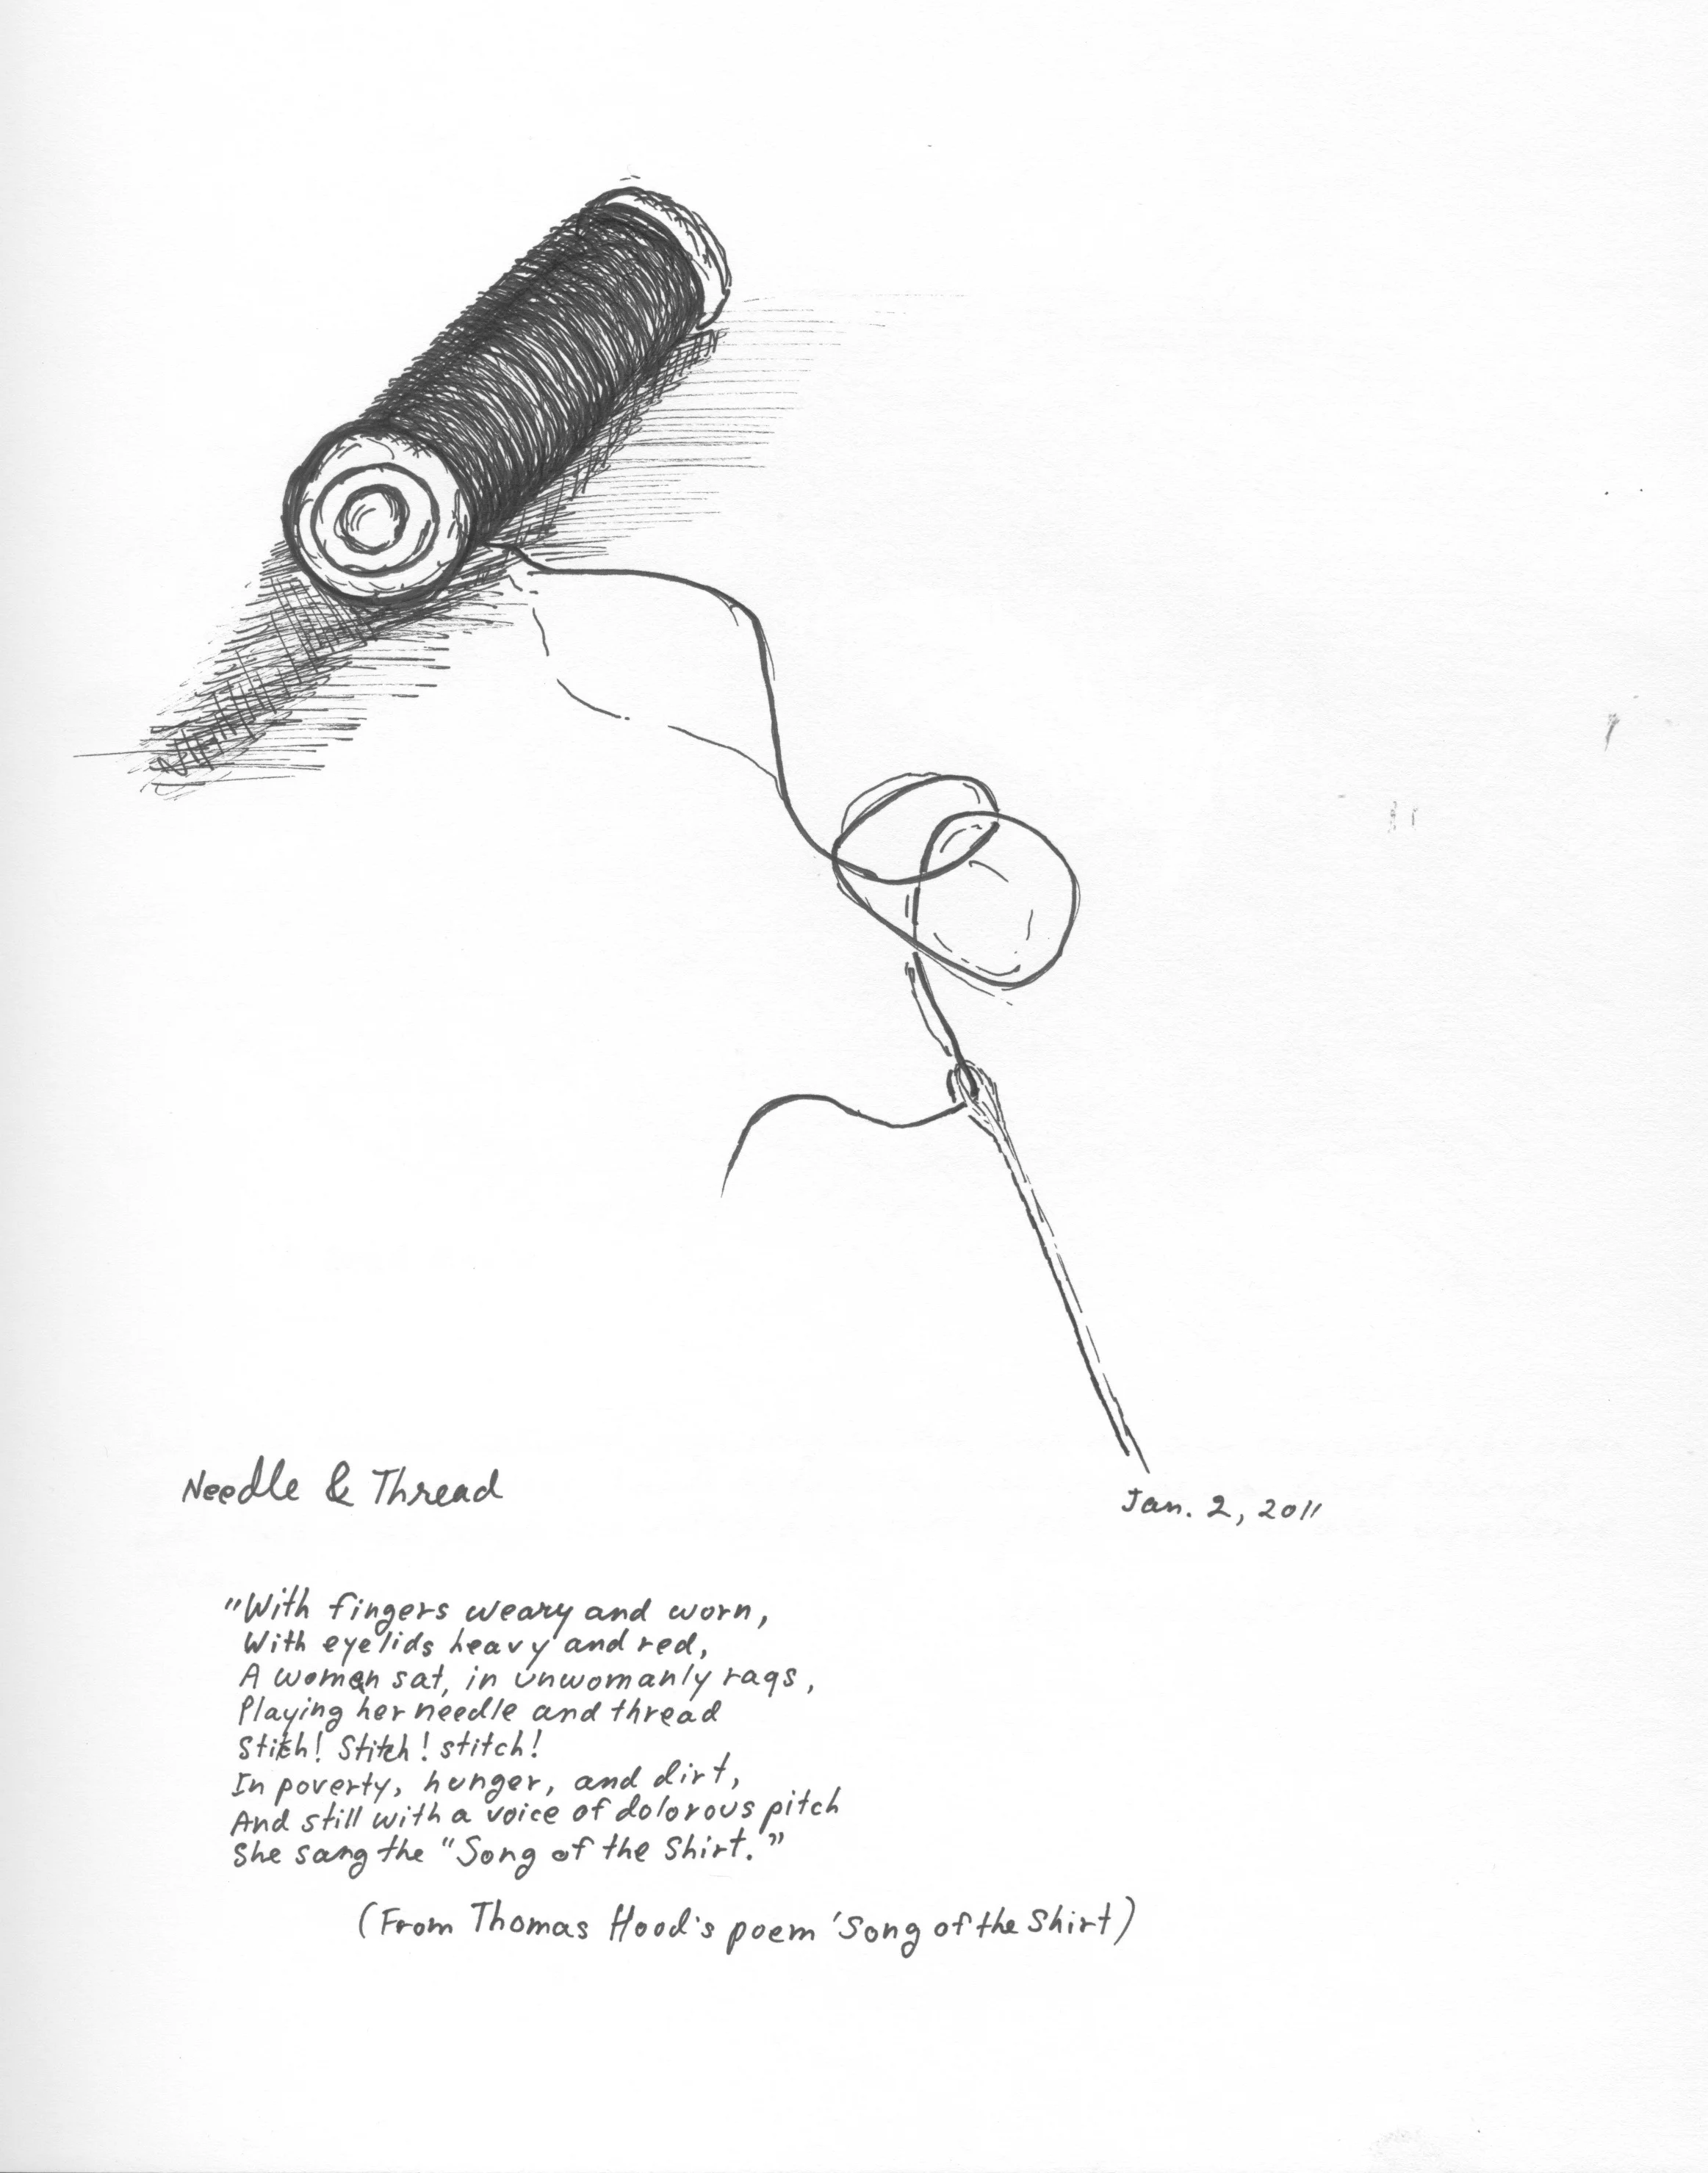 Needle & Thread
Jan. 2, 2011
"With fingers weary and worn,
With eyelids heavy and red,
A woman sat, in unwomanly rags,
Playing her needle and thread
Stitch! Stitch! stitch!
In poverty, hunger, and dirt,
And still with a voice of dolorous pitch
She sang the "Song of the Shirt."
(From Thomas Hood's poem 'Song of the Shirt)